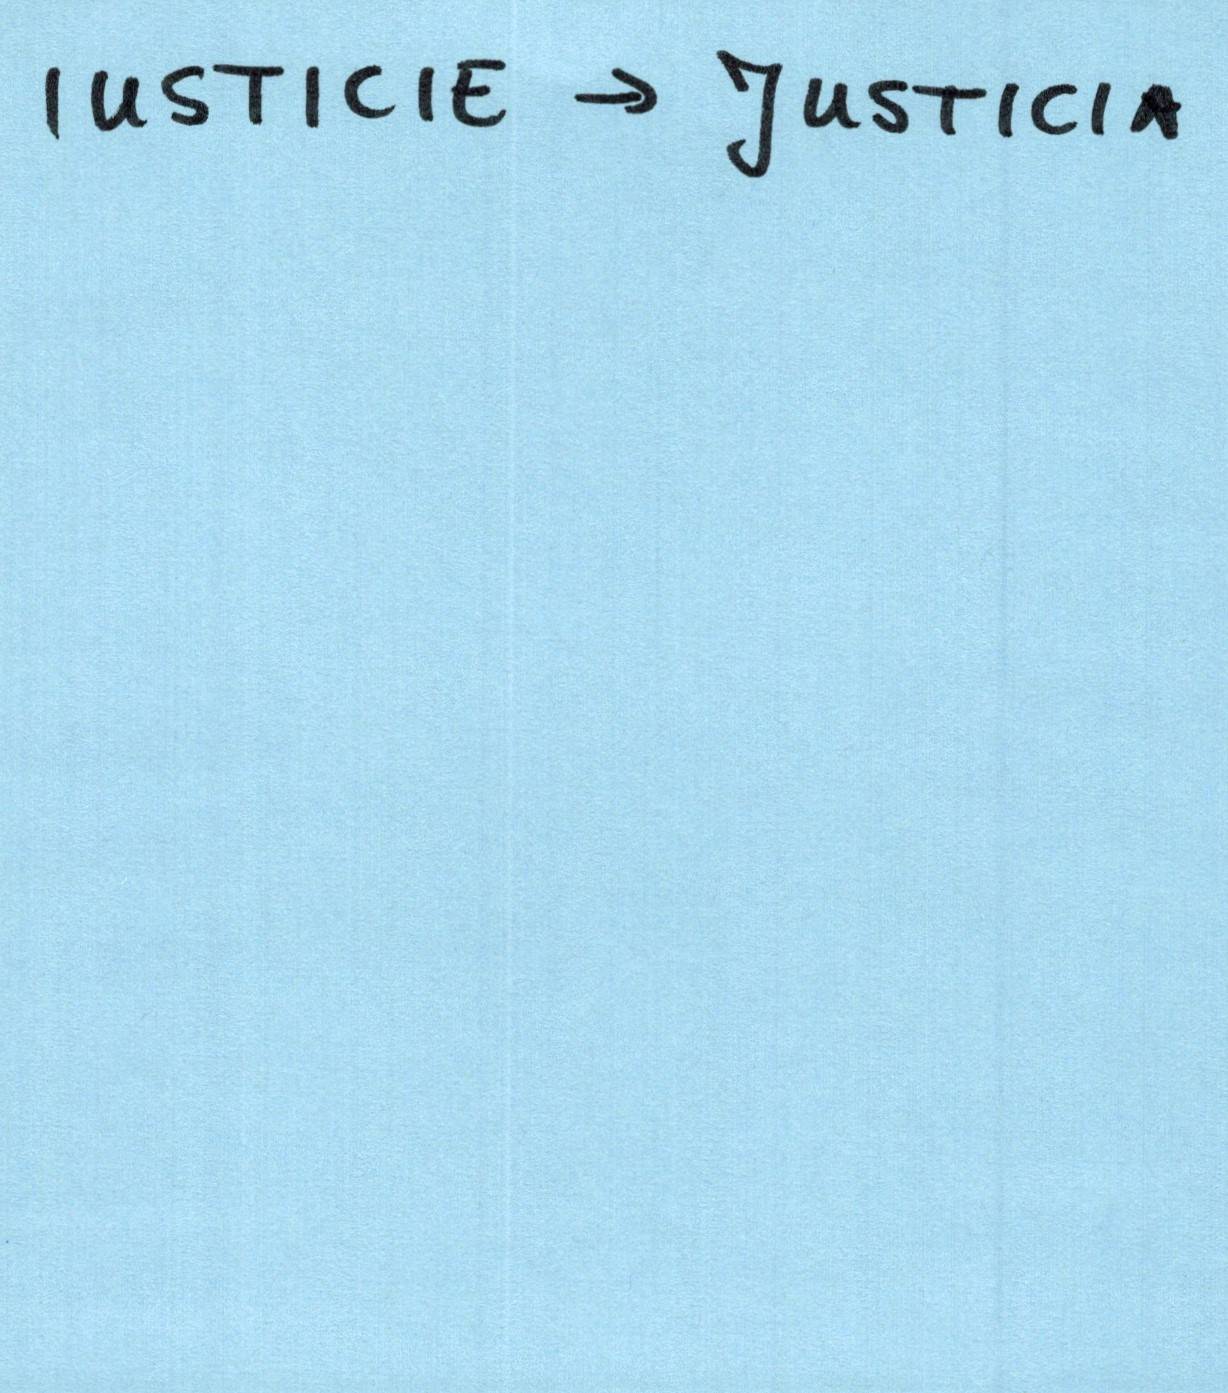 IUSTICIE → JUSTICIA